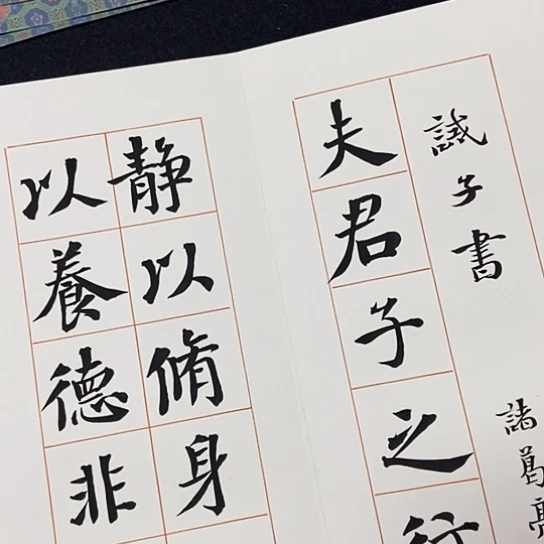 誡子書
諸葛亮
夫君子之行
静以脩身
以養德非